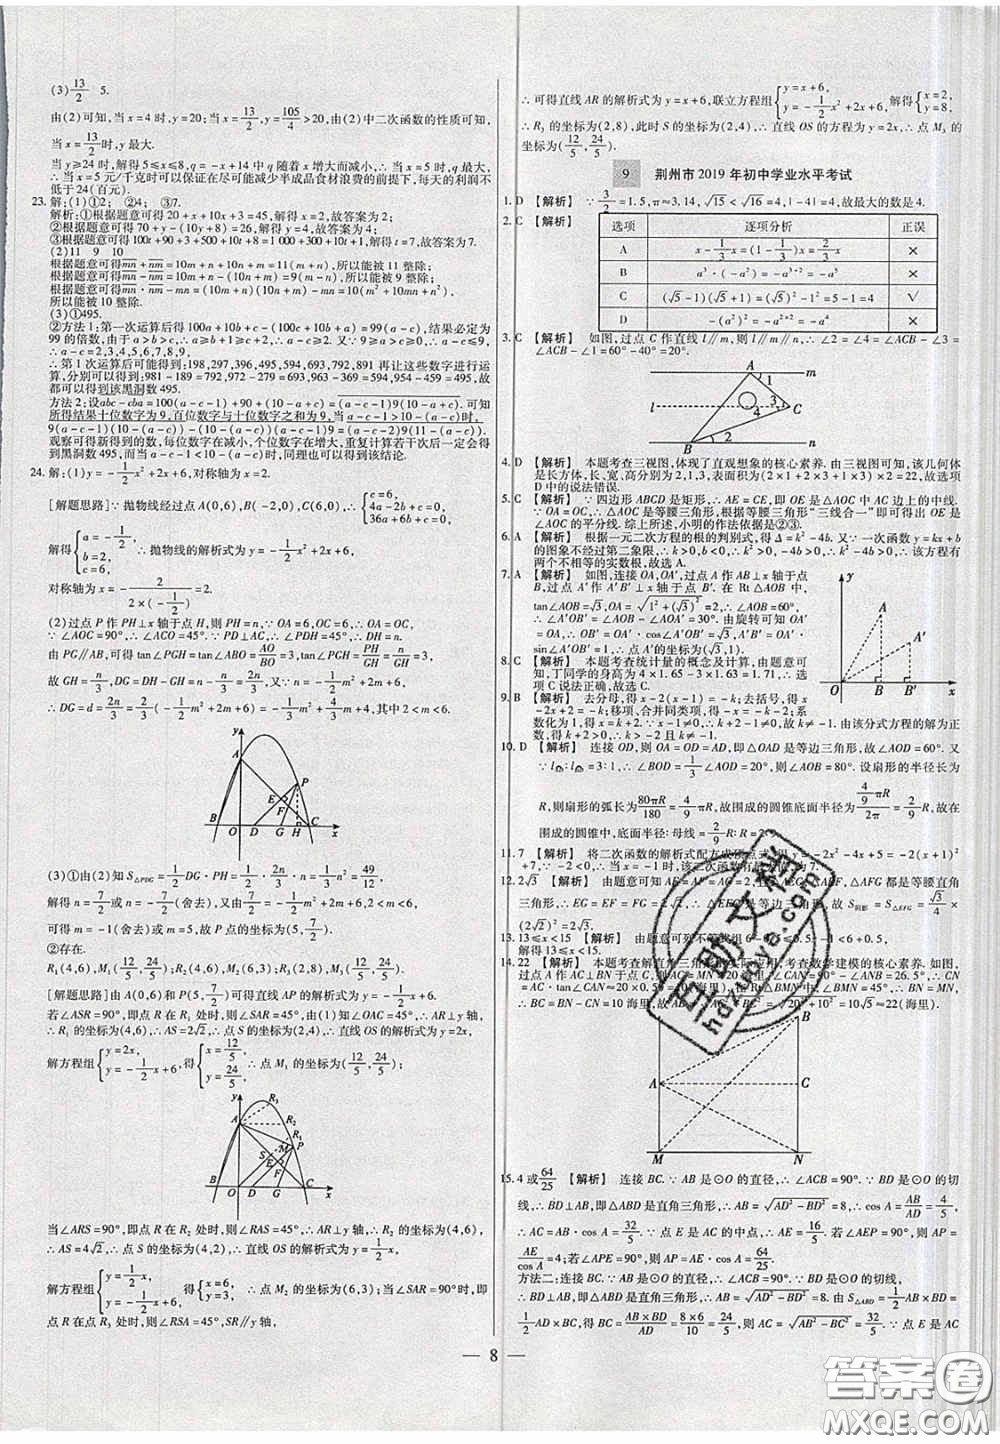 (3) 13/2　5.
由(2)可知,当 x=4 时,y=20;当 x=13/2,y=105/4>20,由(2)中二次函数的性质可知,
当 x=13/2 时,y 最大.
当 y≥24 时,解得 5≤x≤8,q=-x+14 中 q 随着 x 增大而减小,∴当 x=5 时,q 最大.
∴当 x=5 元/千克时可以保证在尽可能多地减少半成品食材浪费的前提下,每天的利润不
低于 24(百元).
23.解:(1)①2　②4　③7.
解析:①根据题意可得 20+x+10x+3=45,解得 x=2,故答案为 2;
②根据题意可得 70+y-(10y+8)=26,解得 y=4,故答案为 4;
③根据题意可得 100t+90+3+500+10t+8=1 000+300+10t+1,解得 t=7,故答案为 7.
(2)11　9　10
根据题意可得 mn+nm=10m+n+10n+m=11(m+n),所以能被 11 整除.
根据题意可得 mn-nm=10m+n-(10n+m)=9(m-n),所以能被 9 整除.
所以能被 10 整除.
(3)①495.
②方法 1:第一次运算后得 100a+10b+c-(100c+10b+a)=99(a-c),结果为
99 的倍数,由于 a>b>c,故 a≥b+1≥c+2,∴a-c≥2.又∵9≥a>c≥0,∴a-c≤9,
∴a-c=2,3,4,5,6,7,8,9.
∴第 1 次运算后可能得到,198,297,396,495,594,693,792,891 再让这些数字经过运算,
∴可以得到该黑洞数 495.
方法 2:设 abc-cba=100(a-c-1)+90+(10-a+c)=(a-c-1)9(10-a+c).可知
所得结果十位数字为 9,百位数字与十位数字之和为 9,当 a-c-1>10-(a-c)时,
观察可得新得到的数,每位数字在减小,个位数字在增大,重复计算若干次后一定会得
到黑洞数 495,而当 a-c-1<10-(a-c)时,同理也可以得到该结论.
24.解:(1)y=-1/2x²+2x+6,对称轴为 x=2.
[解题思路]∵抛物线经过点 A(0,6),B(-2,0),C(6,0),∴{c=6, 4a-2b+c=0, 36a+6b+c=0,
解得{a=-1/2, b=2, c=6, ∴抛物线的解析式为 y=-1/2x²+2x+6,
对称轴为 x=-2/(2×(-1/2))=2.
(2)过点 P 作 PH⊥x 轴于点 H,则 PH=n,∵OA=6,OC=6,∴OA=OC.
∵∠AOC=90°,∴∠ACO=45°.∵PD⊥AC,∴∠PDH=45°,∴DH=n.
由 PG∥AB,可得 tan∠PGH=tan∠ABO=AO/BO=6/2=3,
故 GH=n/3,DG=DH-GH=n-n/3=2n/3,
∴DG=d=2n/3=2/3(-1/2m²+2m+6)=-1/3m²+4/3m+4,其中 2<m<6.
y A P E F B O D G H C x
(3)①由(2)知 S△PDG=1/2DG·PH=1/2·2n/3·n=49/12,
解得 n=7/2 或 n=-7/2(舍去),又由 n=-1/2m²+2m+6=7/2,
可得 m=-1(舍去)或 m=5,故点 P 的坐标为(5,7/2).
②存在.
R1(4,6),M1(12/5,24/5);R2(4,6),M2(6,3);R3(2,8),M3(12/5,24/5).
[解题思路]由 A(0,6)和 P(5,7/2)可得直线 AP 的解析式为 y=-1/2x+6.
∴R1 的坐标为(4,6),∴AS=2√2,∴点 S 的坐标为(2,4),∴直线 OS 的解析式为 y=2x,
解方程组{y=2x, y=-1/2x+6, 得{x=12/5, y=24/5, ∴点 M1 的坐标为(12/5,24/5);
y R3 A R2 R1 M P S E F B O D G C x
当∠ARS=90°,即点 R 在 R2 处时,则∠RAS=45°,∴AR⊥y 轴,∴R2 的坐标为(4,6),
∴AS=4√2,∴点 S 的坐标为(4,2),∴直线 OS 的解析式为 y=1/2x,
解方程组{y=1/2x, y=-1/2x+6, 得{x=6, y=3, ∴点 M2 的坐标为(6,3);当∠SAR=90°,即点
R 在点 R3 处时,则∠RSA=45°,SR∥y 轴,
∴可得直线 AR 的解析式为 y=x+6,联立方程组{y=x+6, y=-1/2x²+2x+6, 解得{x=2, y=8,
∴R3 的坐标为(2,8),此时 S 的坐标为(2,4),∴直线 OS 的方程为 y=2x,∴点 M3 的坐
标为(12/5,24/5).
9　荆州市 2019 年初中学业水平考试
1.D 【解析】 ∵3/2=1.5,π≈3.14,√15<√16=4,|-4|=4,故最大的数是 4.
2.C 【解析】
选项　逐项分析　正误
A　x-1/3x=(1-1/3)x=2/3x　×
B　a³·(-a²)=-a³⁺²=-a⁵　×
C　(√5-1)(√5+1)=(√5)²-1²=5-1=4　√
D　-(a²)²=-a²ˣ²=-a⁴　×
3.C 【解析】 如图,过点 C 作直线 l∥m,则 l∥m∥n,∴∠2=∠4=∠ACB-∠3=
∠ACB-∠1=60°-40°=20°.
A 1 m l 3 C 4 B 2 n
4.D 【解析】 本题考查三视图,体现了直观想象的核心素养.由三视图可知,该几何体
是长方体,长、宽、高分别为 2,1,3,表面积为(2×1+2×3+1×3)×2=22,故选项
D 中的说法错误.
5.C 【解析】 ∵四边形 ABCD 是矩形,∴AE=CE,即 OE 是△AOC 中 AC 边上的中线.
∵OA=OC,∴△AOC 是等腰三角形,根据等腰三角形“三线合一”即可得出 OE
是∠AOC 的平分线.综上所述,小明的作法依据是②③.
6.A 【解析】 根据一元二次方程的根的判别式,得 Δ=k²-4b.又∵一次函数 y=kx+b
的图象不经过第二象限,∴k>0,b<0,∴k²>0,-4b>0,∴k²-4b>0,故该方程有
两个不相等的实数根,故选 A.
7.A 【解析】 如图,连接 OA,OA′,过点 A 作 AB⊥x 轴于点
B,过点 A′作 A′B′⊥x 轴于点 B′.在 Rt△AOB 中,
tan∠AOB=√3,OA=√(1²+(√3)²)=2,∴∠AOB=60°,
∴∠A′OB′=∠AOB-30°=30°.由旋转可知
OA′=OA,∴OB′=OA′·cos∠A′OB′=√3,A′B′=OA′·
sin∠A′OB′=1,∴点 A′的坐标为(√3,1).
y A A′ O B B′ x
8.C 【解析】 本题考查统计量的概念及计算,由题意可
知,丁同学的身高为 4×1.65-3×1.63=1.71,故选
项 C 说法正确,故选 C.
9.B 【解析】 去分母,得 x-2(x-1)=-k;去括号,得 x
-2x+2=-k;移项、合并同类项,得-x=-k-2;系
数化为 1,得 x=k+2.∵x-1≠0,∴x≠1,∴k+2≠1,∴k≠-1.由该分式方程的解为正
数,得 k+2>0,∴k>-2,∴k>-2 且 k≠-1.
10.D 【解析】 连接 OD,则 OA=OD=AD,即△AOD 是等边三角形,故∠AOD=60°.又
=3∶1,∴∠BOD=1/3∠AOD=20°,则∠AOB=80°.设扇形的半径长为
R,则扇形的弧长为 80πR/180=4/9πR,故围成的圆锥底面半径为 (4/9πR)/2π=2/9R,故在
围成的圆锥中,底面半径∶母线=2/9R∶R=2∶9.
11.7 【解析】 将二次函数的解析式配方成顶点式,得 y=-2x²-4x+5=-2(x+1)²
+7,∵-2<0,∴当 x=-1 时,该二次函数有最大值 7.
12.2√3 【解析】 由题意可知 AE=AF=AG=2,且△AEG,△AEF,△AFG 都是等腰直角
三角形,∴EG=EF=FG=2√2,∴△EFG 是等边三角形,故 S阴影=S△EFG=√3/4×
(2√2)²=2√3.
13.13≤x<15 【解析】 由题意可列不等式组 6-0.5≤0.5x-1<6+0.5,
解得 13≤x<15.
14.22 【解析】 本题考查解直角三角形的实际应用,考查数学建模的核心素养.如图,
B A C M N
15.4 或 64/25 【解析】 连接 BC.∵AB 是⊙O 的直径,∴∠ACB=90°.∵BD 是⊙O 的切
线,∴BD⊥AB,即△ABD 是直角三角形,∴AB=√(AD²-BD²)=8,∴cos A=AB/AD=4/5,
∴AC=AB·cos A=32/5.∵点 E 是 AC 的中点,∴AE=16/5.若∠AEP=90°,则 AP=
AE/cos A=4;若∠APE=90°,则 AP=AE·cos A=64/25.
方法二:连接 BC.∵AB 是⊙O 的直径,∴∠ACB=90°.∵BD 是⊙O 的切线,
∴BD⊥AB,即△ABD 是直角三角形,∴AB=√(AD²-BD²)=8.由 S△ABD=1/2AB×BD=
1/2AD×BC,知 BC=AB×BD/AD=8×6/10=24/5,∴AC=√(AB²-BC²)=32/5.
8
答案圈
MXQE.COM